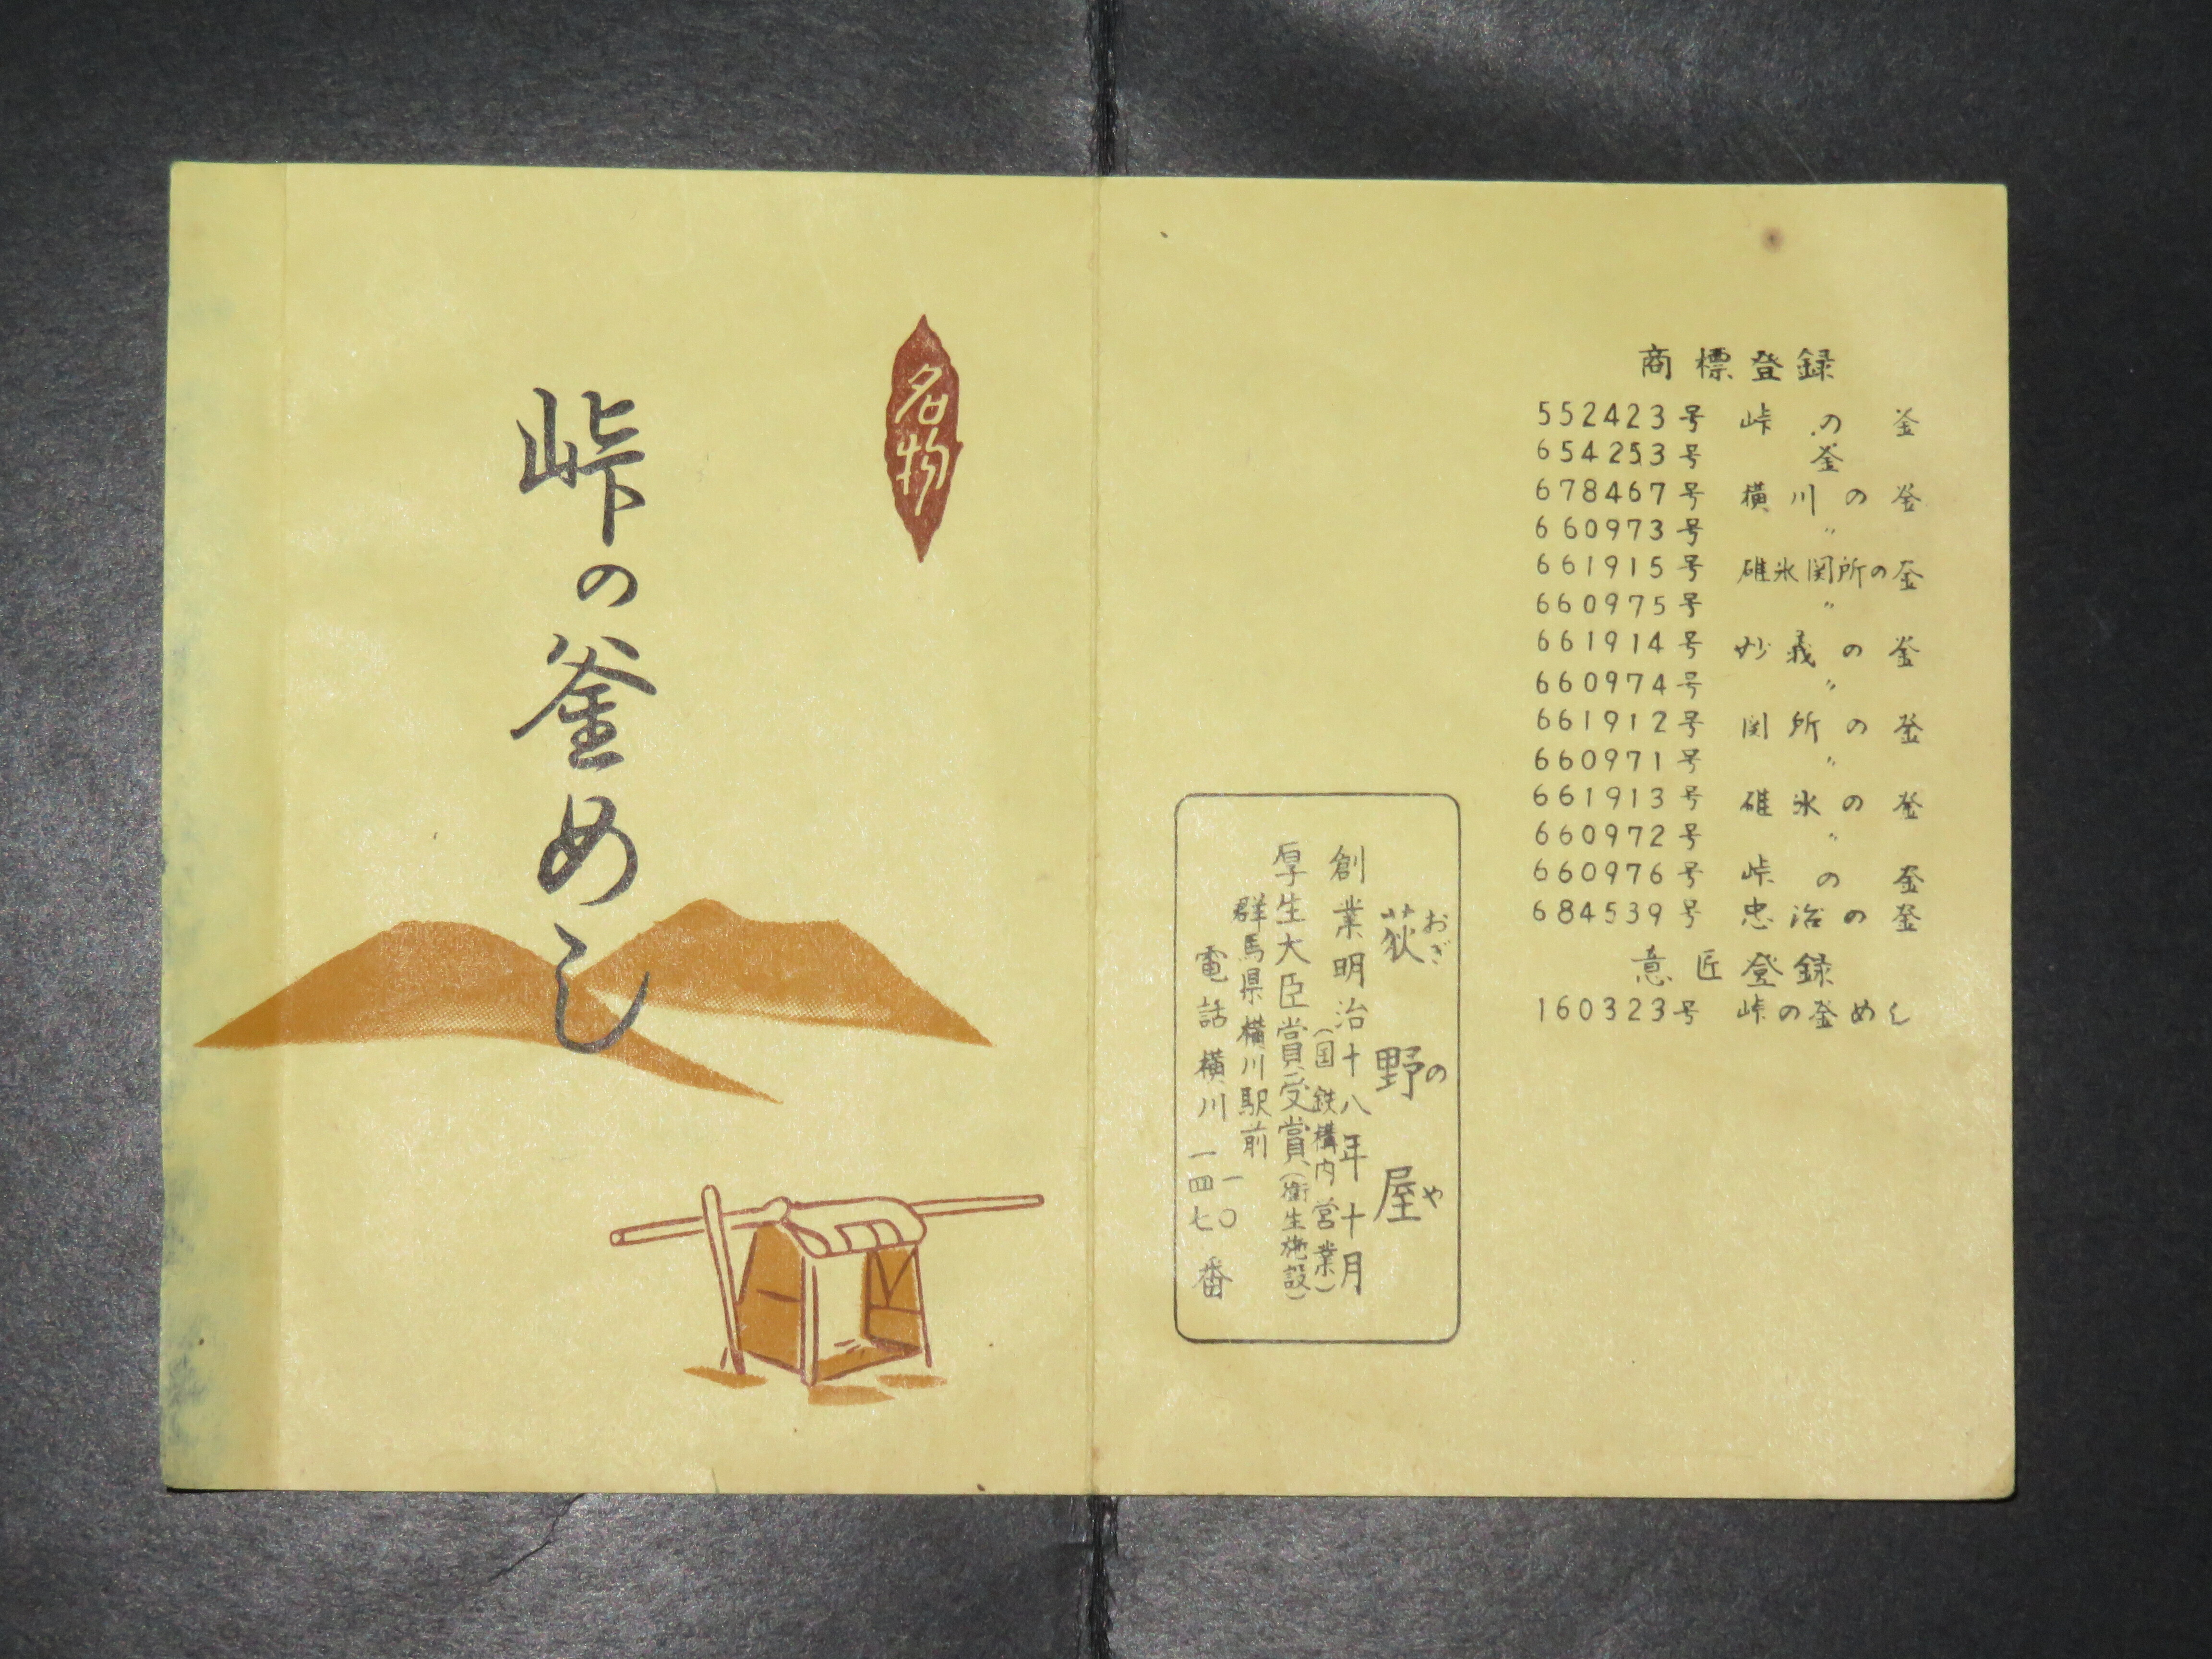 名物
峠の釜めし
商標登録
552423号 峠の釜
654253号 釜
678467号 横川の釜
660973号 〃
661915号 碓氷関所の釜
660975号 〃
661914号 妙義の釜
660974号 〃
661912号 関所の釜
660971号 〃
661913号 碓氷の釜
660972号 〃
660976号 峠の釜
684539号 忠治の釜
意匠登録
160323号 峠の釜めし
荻野屋
おぎのや
創業明治十八年十月
(国鉄構内営業)
厚生大臣賞受賞(衛生施設)
群馬県横川駅前
電話横川一〇
一四七番